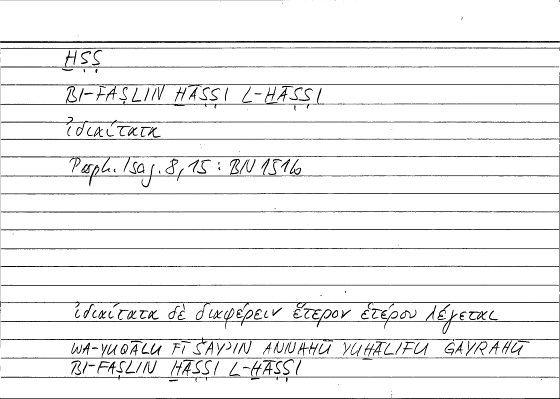 ḪṢṢ
BI-FAṢLIN ḪĀṢṢI L-ḪĀṢṢI
ἰδιαίτατα
Porph. Isag. 8,15 : BN 151b
ἰδιαίτατα δὲ διαφέρειν ἕτερον ἑτέρου λέγεται
WA-YUQĀLU FĪ ŠAYʾIN ANNAHŪ YUḪĀLIFU ĠAYRAHŪ
BI-FAṢLIN ḪĀṢṢI L-ḪĀṢṢI